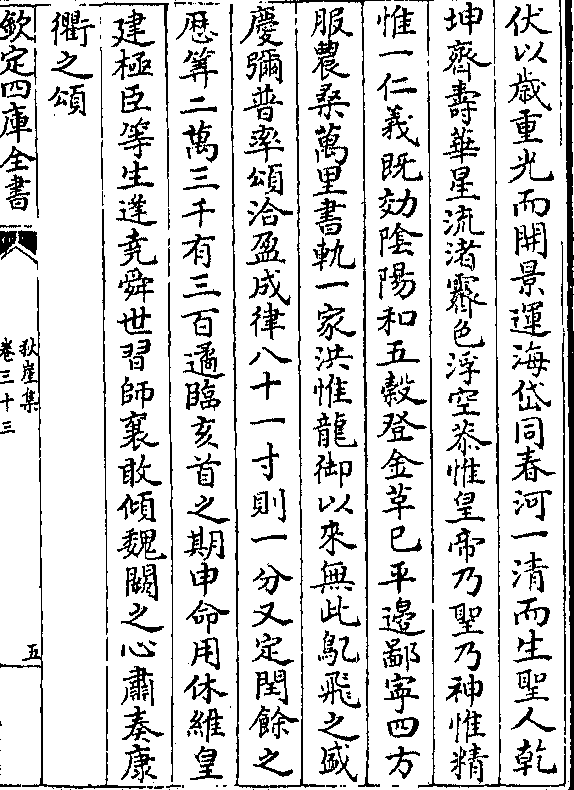 伏以歳重光而開景運海岱同春河一清而生聖人乾
坤齊壽華星流渚霽色浮空恭惟皇帝乃聖乃神惟精
惟一仁義既効陰陽和五穀登金草已平邊鄙寜四方
服農桑萬里書軌一家洪惟龍御以來無此鳬飛之盛
慶彌普率頌洽盈成律八十一寸則一分又定閏餘之
厯筭二萬三千有三百遹臨亥首之期申命用休維皇
建極臣等生逢堯舜世習師襄敢傾魏闕之心肅奏康
衢之頌
欽定四庫全書
秋崖集
卷三十三
五